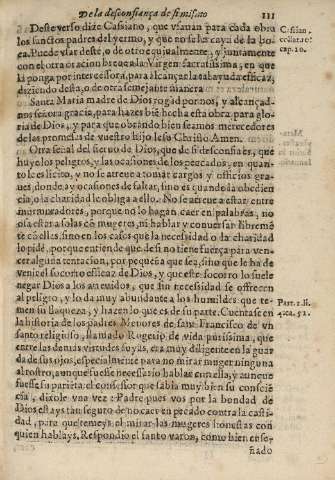 De la desconfiança de si mismo
111
Deste verso dize Cassiano, que vsauan para cada obra
los sanctos padres del yermo, y que no se les caya de la bo-
ca. Puede vsar deste, o de otro equiualente, y juntamente
con el otra oracion breue a la Virgen sacratissima, en que
la ponga por intercessora, para alcançar la tal ayuda eficaz,
diziendo desta, o de otra semejante manera
Santa Maria madre de Dios rogad por nos, y alcançad-
nos señora gracia, para hazer biē hecha esta obra, para glo-
ria de Dios, y para que obrando bien seamos merecedores
de las promessas de vuestro hijo Iesu Christo. Amen.
Otra señal del sieruo de Dios, que de si desconfia es, que
huye los peligros, y las ocasiones de los peccados, en quan-
to le es licito, y no se atreue a tomar cargos y officios gra-
ues, donde ay ocasiones de faltar, sino es quando la obedien
cia, o la charidad le obliga a ello. No se atreue a estar entre
murmuradores, porque no lo hagan caer en palabras, no
osa estar a solas cō mugeres, ni hablar y conuersar libremē
te cō ellas, sino en los casos que la necessidad o la charidad
lo pide, porque entiende que de si no tiene fuerça para ven-
cer alguna tentacion, por pequeña que sea, sino que le ha de
venir el socorro eficaz de Dios, y que este socorro lo suele
negar Dios a los atreuidos, que sin necessidad se offrecen
al peligro, y lo da muy abundante a los humildes que te-
men su flaqueza, y hazen lo que es de su parte. Cuentase en
la historia de los padres Menores de san Francisco de vn
santo religioso, llamado Rogerio de vida purissima, que
entre las demas virtudes suyas, era muy diligente en la guar
da de sus ojos, especialmente para no mirar muger ninguna
al rostro, aunque fuesse necessario hablar con ella, y aunque
fuesse su parieta: el confessor que sabia muy bien su conscie
cia, dixole vna vez: Padre pues vos por la bondad de
Dios estays tan seguro de no caer en pecado contra la casti-
dad, para que temeys el mirar las mugeres honestas con
quien hablays. Respondio el santo varon, como bien ense-
ñado
Cassian.
collat. 10.
cap. 10.
Part. 1. li.
4. ca. 52.